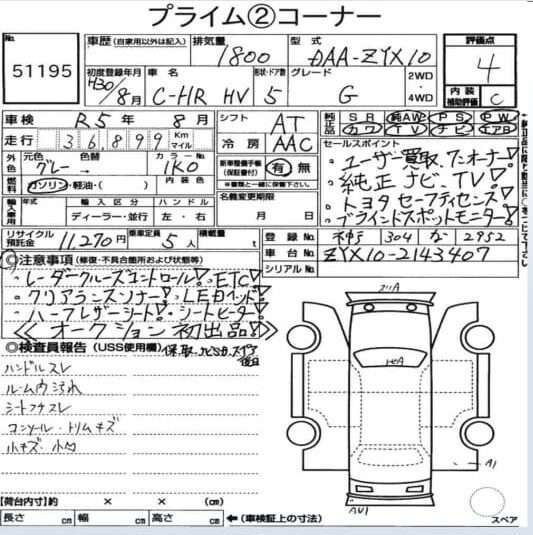 プライム②コーナー
No. 51195
車歴 (自家用以外は記入)
排気量 1800
型式 DAA-ZYX10
評価点 4
初度登録年月 H30/8月
車名 C-HR HV
形状・ドア数 5
グレード G
2WD・4WD
内装補助評価 C
車検 R5年 8月
シフト AT
純正品 SR 純AW PS PW
カワ TV ナビ エアB
走行 36,899 Km マイル
冷房 AAC
セールスポイント
・ユーザー買取、ワンオーナー!
・純正ナビ、TV!
・トヨタセーフティセンス!
・ブラインドスポットモニター!
外色 元色 グレー 色替
カラーNo. 1K0
燃料 ガソリン・軽油・( )
新車整備手帳(保証書付) 有 無
※書類と一緒に保管下さい。
輸入車用 年式 輸入区分 ハンドル
ディーラー・並行 左・右
名義変更期限
月 日
リサイクル預託金 11,270円
乗車定員 5人
積載量 t
登録No. 304 な 2952
車台No. ZYX10-2143407
シリアルNo.
◎注意事項 (修復・不具合箇所および状態等)
・レーダークルーズコントロール!・ETC!
・クリアランスソナー!・LEDヘッド!
・ハーフレザーシート!・シートヒーター!
《オークション初出品!》
◎検査員報告 (USS使用欄) 保、取、ナビSD、スペア後日
ハンドルスレ
ルーム内汚れ
シートフチスレ
コンソール・トリムキズ
小キズ・小凹
A1
AW1
スペア
【荷台内寸】約 × × (cm)
長さ cm 幅 cm 高さ cm ←(車検証上の寸法)